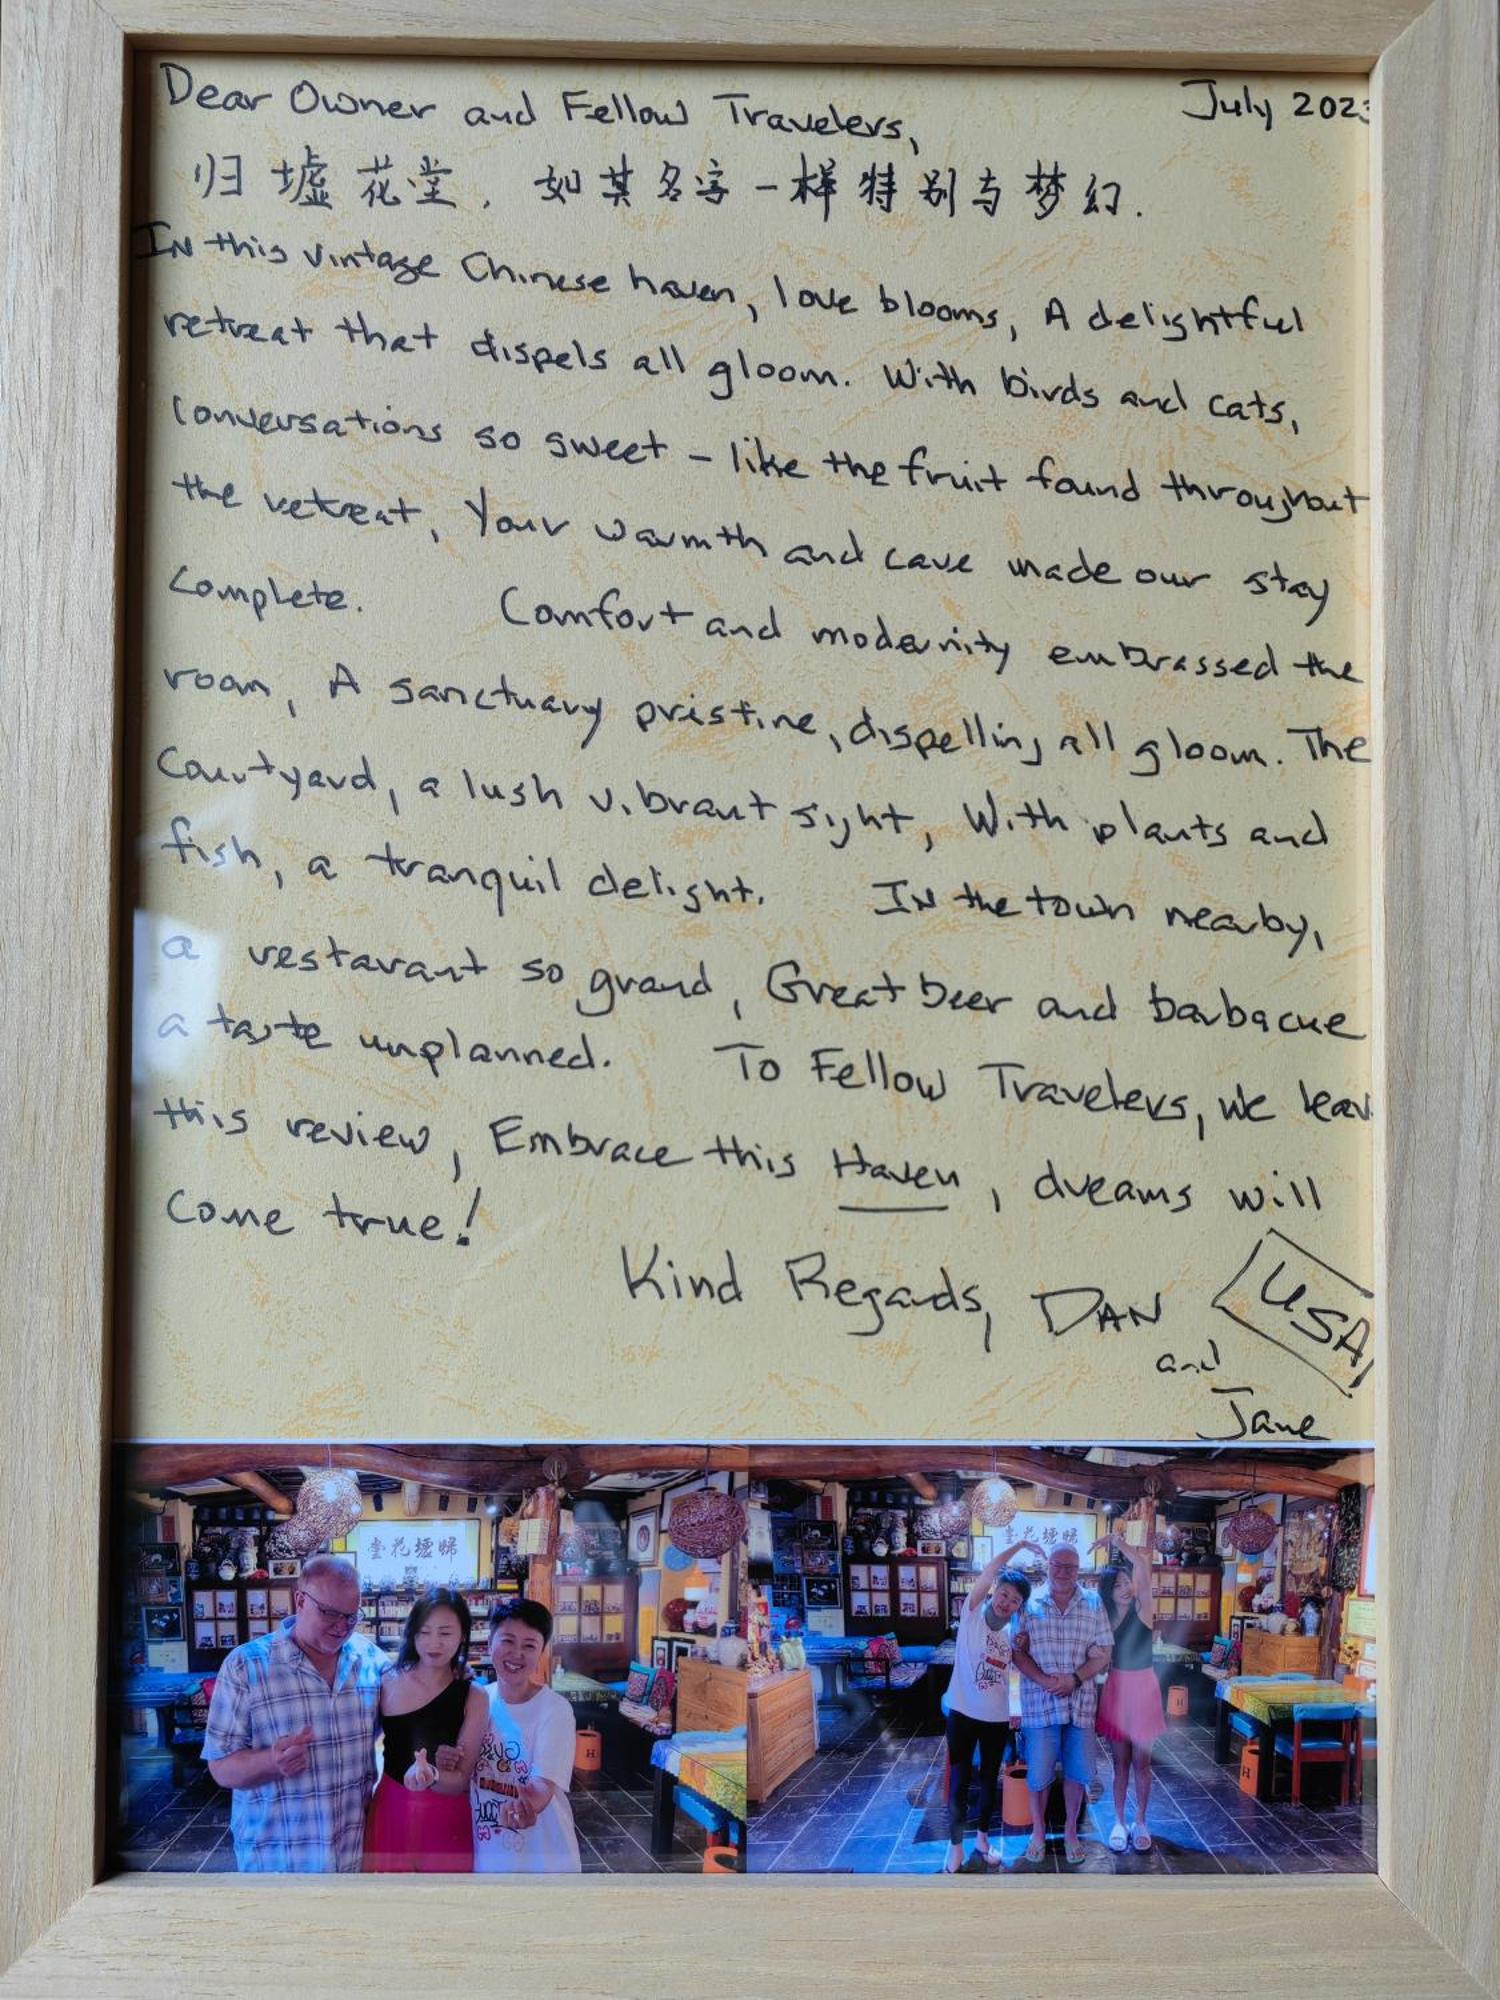 Dear Owner and Fellow Travelers,
July 2023
归墟花堂，如其名字一样特别与梦幻.
IN this vintage Chinese haven, love blooms, A delightful
retreat that dispels all gloom. With birds and cats,
conversations so sweet - like the fruit found throughout
the retreat, Your warmth and care made our stay
complete. Comfort and modernity embrassed the
room, A sanctuary pristine, dispelling all gloom. The
Courtyard, a lush vibrant sight, With plants and
fish, a tranquil delight. IN the town nearby,
a restaraunt so grand, Great beer and barbacue
a taste unplanned. To Fellow Travelers, we leav
this review, Embrace this Haven, dreams will
come true!
Kind Regards, DAN
USA
and
Jane
堂花墟歸
H
堂花墟歸
H
H